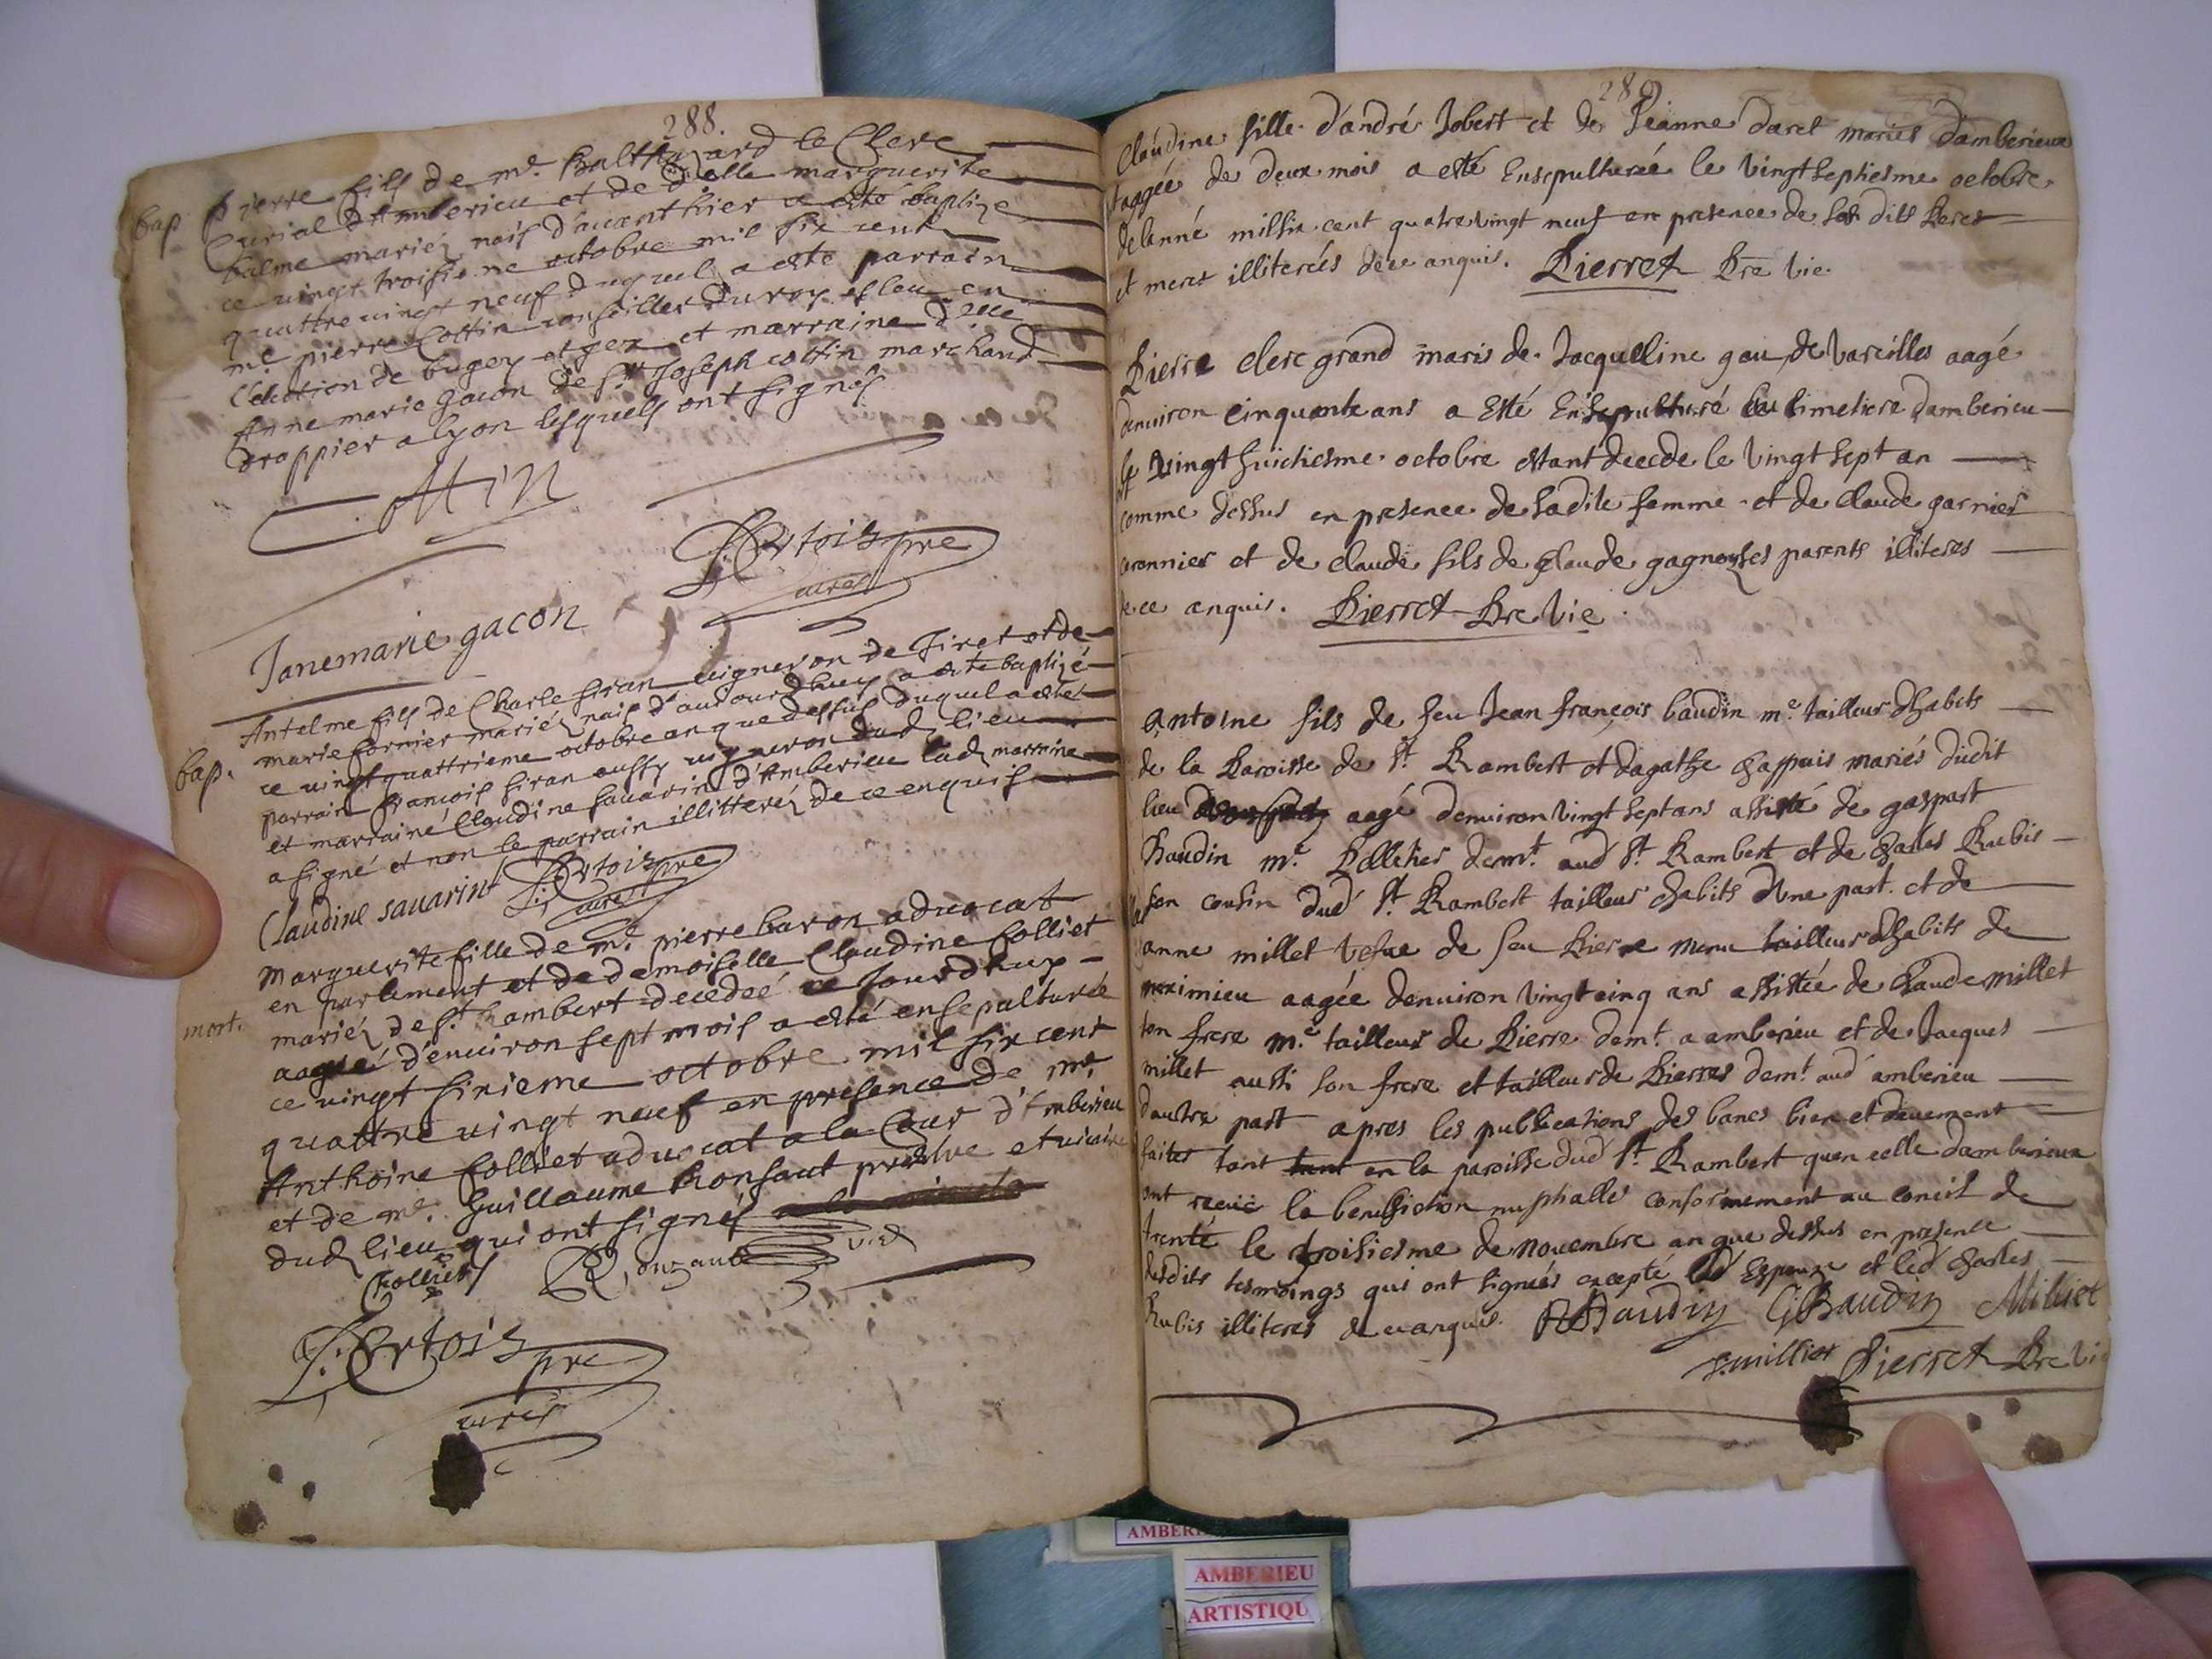 288.
bap pierre fils de me. Balthazard le Clerc
Curial d'Amberieu et de dlle marguerite
balme mariez nais d'auanthier a esté baptize
ce vingt troisieme octobre mil six cent
quattre vingt neuf duquel a esté parrain
me. pierre Cottin conseiller du roy esleu en
l'election de bugey et gex et marraine dlle
Anne marie gacon de sr Joseph cottin marchand
drappier a lyon lesquels ont signés
Cottin
J. Bertois pre
curé
Janemarie gacon
Antelme fils de Charle siran vigneron de Tiret et de
bap. marie fornier mariez nais d'aujourdhuy a esté baptizé
ce vingt quattrieme octobre an que dessus duquel a esté
parrain francois siran aussy vigneron dud lieu
et marraine Claudine sauarin d'Amberieu lad marraine
a signé et non le parrain illitteréz de ce enquis
Claudine sauarint J. Bertois pre
curé
marguerite fille de me. pierre baron aduocat
en parlement et de demoiselle Claudine Colliet
mort. mariéz de st. rambert decedeé ce Jourdhuy
aageé d'enuiron sept mois a esté ensepulturée
ce vingt sixieme octobre mil six cent
quattre vingt neuf en presence de me.
Anthoine Colliet aduocat a la Cour d'Amberieu
et de me. Guillaume Ronsaut prebstre et vicaire
dud lieu qui ont signés
Colliet Ronzaut vic
J. Bertois
pre
curé
289
Claudine fille d'andré Jobert et de Jeanne daret mariés damberieux
aagée de deux mois a esté Ensepulturéé le vingt septiesme octobre
de lanné mil six cent quatre vingt neuf en presence de ses dits Peres
et meres illiterés de ce anquis. Pierret Pre vie.
Pierre clerc grand maris de Jacquelline gau de vareilles aagé
denuiron cinquante ans a Esté Ensepulturé au simetiere damberieu
le vingt huictiesme octobre estant decede le vingt sept an
comme dessus en presence de sadite femme et de claude garnier
caronnier et de claude fils de claude gagneux ses parents illiteres
de ce anquis. Pierret Pre Vie.
Antoine fils de feu Jean françois baudin me. tailleur dhabits
de la Paroisse de st. Rambert et dagathe chappuis mariés dudit
lieu aagé denuiron vingt sept ans assisté de gaspart
Baudin me. Pelletier demt. aud st. Rambert et de charles Rubis
son cousin dud st. Rambert tailleur dhabits dune part. et de
anne millet vefue de feu Pierre menu tailleur dhabits de
meximieu aagée denuiron vingt cinq ans assistée de Claude millet
son frere me. tailleur de Pierre demt. a amberieu et de Jacques
millet aussi son frere et tailleur de Pierres demt. aud amberieu
dautre part apres les publications des bancs bien et deuement
faites tant tant en la paroisse dud st. Rambert quen celle damberieux
ont receü la benediction nuphalle conformement au concil de
trente le troisiesme de nouembre an que dessus en presence
desdits tesmoings qui ont signées excepté lad Espouse et led charles
Rubis illiteres de ce anquis. A Baudin G Baudin Milliet
J. millier Pierret Pre Vie
AMBERIEU
ARTISTIQU